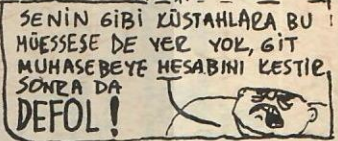 SENİN GİBİ KÜSTAHLARA BU
MÜESSESE DE YER YOK, GİT
MUHASEBEYE HESABINI KESTİR,
SONRA DA
DEFOL!